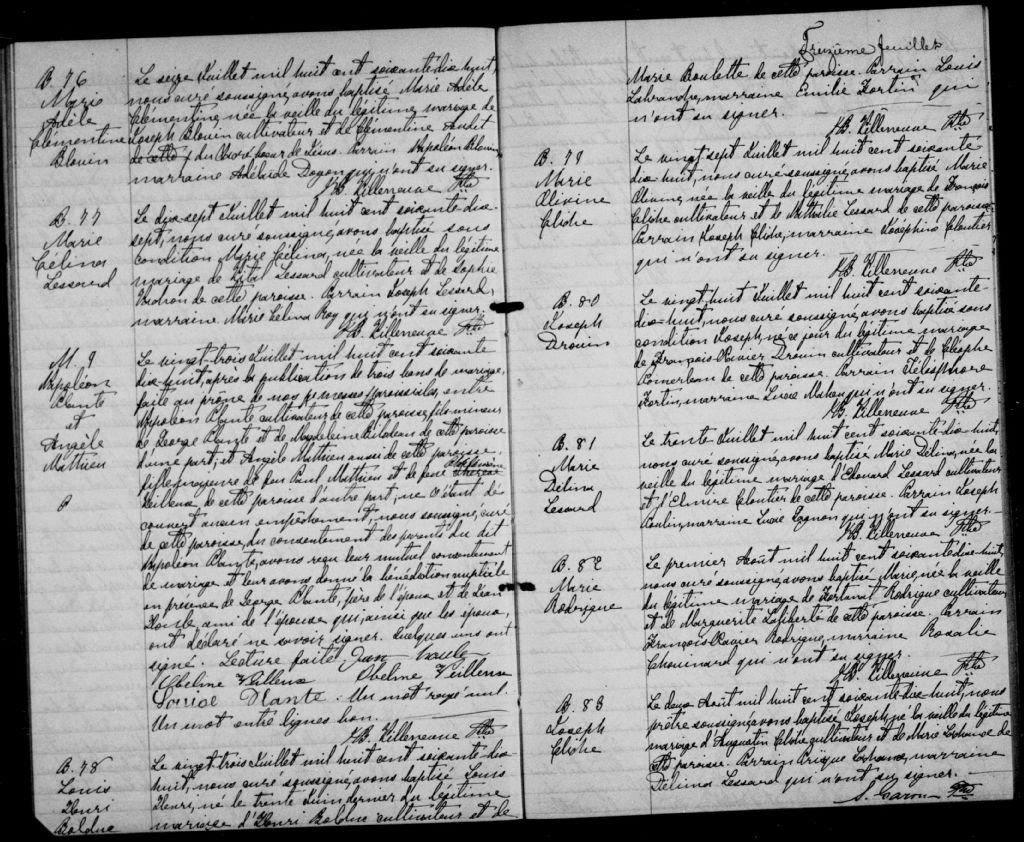 B. 76
Marie
Adèle
Clémentine
Blouin
Le seize Juillet mil huit cent soixante-dix-huit,
nous curé soussigné, avons baptisé Marie Adèle
Clémentine, née la veille du légitime mariage de
Joseph Blouin cultivateur et de Clémentine Audet
de cette du Sacré Coeur de Jésus. Parrain Napoléon Blouin
marraine Adélaïde Doyon qui n'ont su signer.
JB. Villeneuve Ptre
B. 77
Marie
Célina
Lessard
Le dix-sept Juillet mil huit cent soixante-dix-
sept, nous curé soussigné, avons baptisé sous
condition Marie Célina, née la veille du légitime
mariage de Vital Lessard cultivateur et de Sophie
Vachon de cette paroisse. Parrain Joseph Lessard,
marraine Marie Celina Roy qui n'ont su signer.
JB. Villeneuve Ptre
M. 9
Napoléon
Plante
et
Angèle
Mathieu
P
Le vingt-trois Juillet mil huit cent soixante
dix-huit, après la publication de trois bans de mariage,
faite au prône de nos messes paroissiales, entre
Napoléon Plante cultivateur de cette paroisse, fils mineur
de George Plante et de Madeleine Bilodeau de cette paroisse
d'une part; et Angèle Mathieu aussi de cette paroisse
fille majeure de feu Paul Mathieu et de feue
Veilleux de cette paroisse d'autre part; ne s'étant dé-
couvert aucun empêchement, nous soussigné, curé
de cette paroisse, du consentement des parents du dit
Napoléon Plante, avons reçu leur mutuel consentement
de mariage et leur avons donné la bénédiction nuptiale
en présence de George Plante, père de l'époux et de Jean
ami de l'épouse qui, ainsi que les époux,
ont déclaré ne savoir signer. Quelques uns ont
signé. Lecture faite. Jean
Obeline Veilleux Obeline Veilleux
Plante. Un mot rayé nul.
Un mot entre lignes bon.
JB. Villeneuve Ptre
B. 78
Louis
Henri
Bolduc
Le vingt-trois Juillet mil huit cent soixante dix-
huit, nous curé soussigné, avons baptisé Louis
Henri, né le trente Juin dernier du légitime
mariage d'Henri Bolduc cultivateur et de
Treizième feuillet
Marie Boulette de cette paroisse. Parrain Louis
Labranche, marraine Emilie Fortin qui
n'ont su signer.
JB. Villeneuve Ptre
B. 79
Marie
Olivine
Cliche
Le vingt-sept Juillet mil huit cent soixante
dix-huit, nous curé soussigné, avons baptisé Marie
Olivine, née la veille du légitime mariage de François
Cliche cultivateur et de Nathalie Lessard de cette paroisse
Parrain Joseph Cliche, marraine Josephine Cloutier
qui n'ont su signer.
JB. Villeneuve Ptre
B. 80
Joseph
Drouin
Le vingt-huit Juillet mil huit cent soixante-
dix-huit, nous curé soussigné, avons baptisé sous
condition Joseph, né ce jour du légitime mariage
de François-Xavier Drouin cultivateur et de Cléophe
Pomerleau de cette paroisse. Parrain Télesphore
Fortin, marraine Lucie Maheu qui n'ont su signer.
JB. Villeneuve Ptre
B. 81
Marie
Délina
Lessard
Le trente Juillet mil huit cent soixante-dix-huit,
nous curé soussigné, avons baptisé Marie Délina, née la
veille du légitime mariage d'Edouard Lessard cultivateur
et d'Elmire Cloutier de cette paroisse. Parrain Joseph
Poulin, marraine Lucie Gagnon qui n'ont su signer.
JB. Villeneuve Ptre
B. 82
Marie
Rodrigue
Le premier Août mil huit cent soixante-dix-huit,
nous curé soussigné, avons baptisé Marie, née la veille
du légitime mariage de Ferdinand Rodrigue cultivateur
et de Marguerite Laliberté de cette paroisse. Parrain
François-Xavier Rodrigue, marraine Rosalie
Chouinard qui n'ont su signer.
JB. Villeneuve Ptre
B. 83
Joseph
Cliche
Le deux Août mil huit cent soixante-dix-huit, nous
prêtre soussigné, avons baptisé Joseph, né la veille du légitime
mariage d'Augustin Cliche cultivateur et de Marie de
cette paroisse. Parrain marraine
Délima Lessard qui n'ont su signer.
Caron Ptre